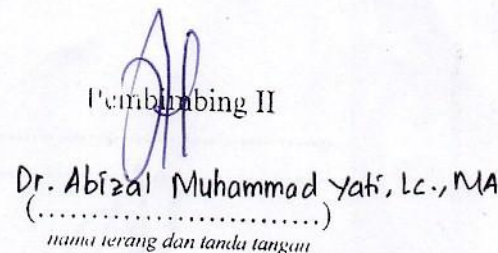 Pembimbing II
Dr. Abizal Muhammad Yati, Lc., MA
(............................)
nama terang dan tanda tangan